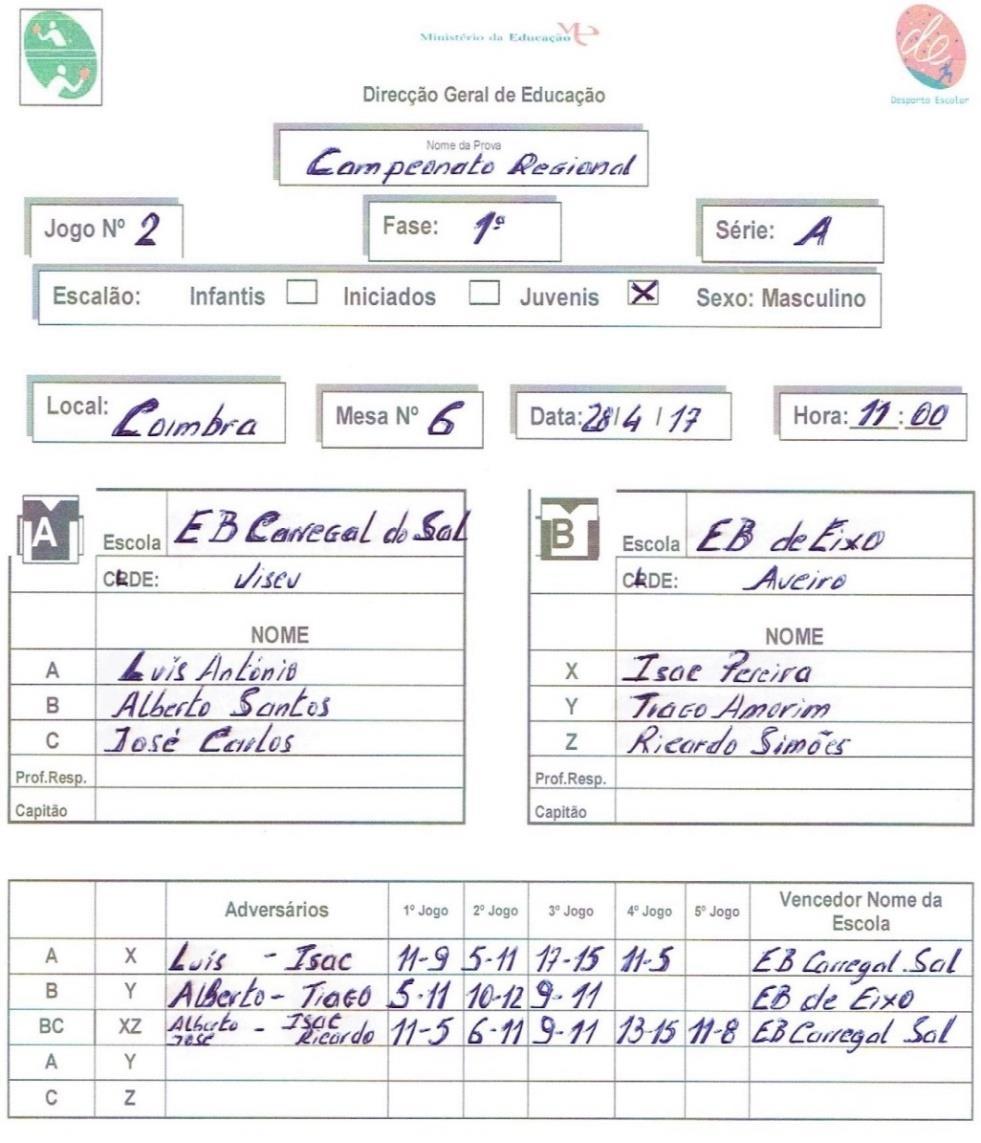 Ministério da Educação
de
Desporto Escolar
Direcção Geral de Educação
Nome da Prova
Campeonato Regional
Jogo Nº 2 Fase: 1ª Série: A
Escalão: Infantis Iniciados Juvenis X Sexo: Masculino
Local: Coimbra Mesa Nº 6 Data: 28/4/17 Hora: 11:00
A Escola EB Carregal do Sal
CLDE: Viseu
NOME
A Luís António
B Alberto Santos
C José Carlos
Prof.Resp.
Capitão
B Escola EB de Eixo
CLDE: Aveiro
NOME
X Isac Pereira
Y Tiago Amorim
Z Ricardo Simões
Prof.Resp.
Capitão
Adversários 1º Jogo 2º Jogo 3º Jogo 4º Jogo 5º Jogo Vencedor Nome da Escola
A X Luís - Isac 11-9 5-11 17-15 11-5 EB Carregal Sal
B Y Alberto - Tiago 5-11 10-12 9-11 EB de Eixo
BC XZ Alberto José - Isac Ricardo 11-5 6-11 9-11 13-15 11-8 EB Carregal Sal
A Y
C Z